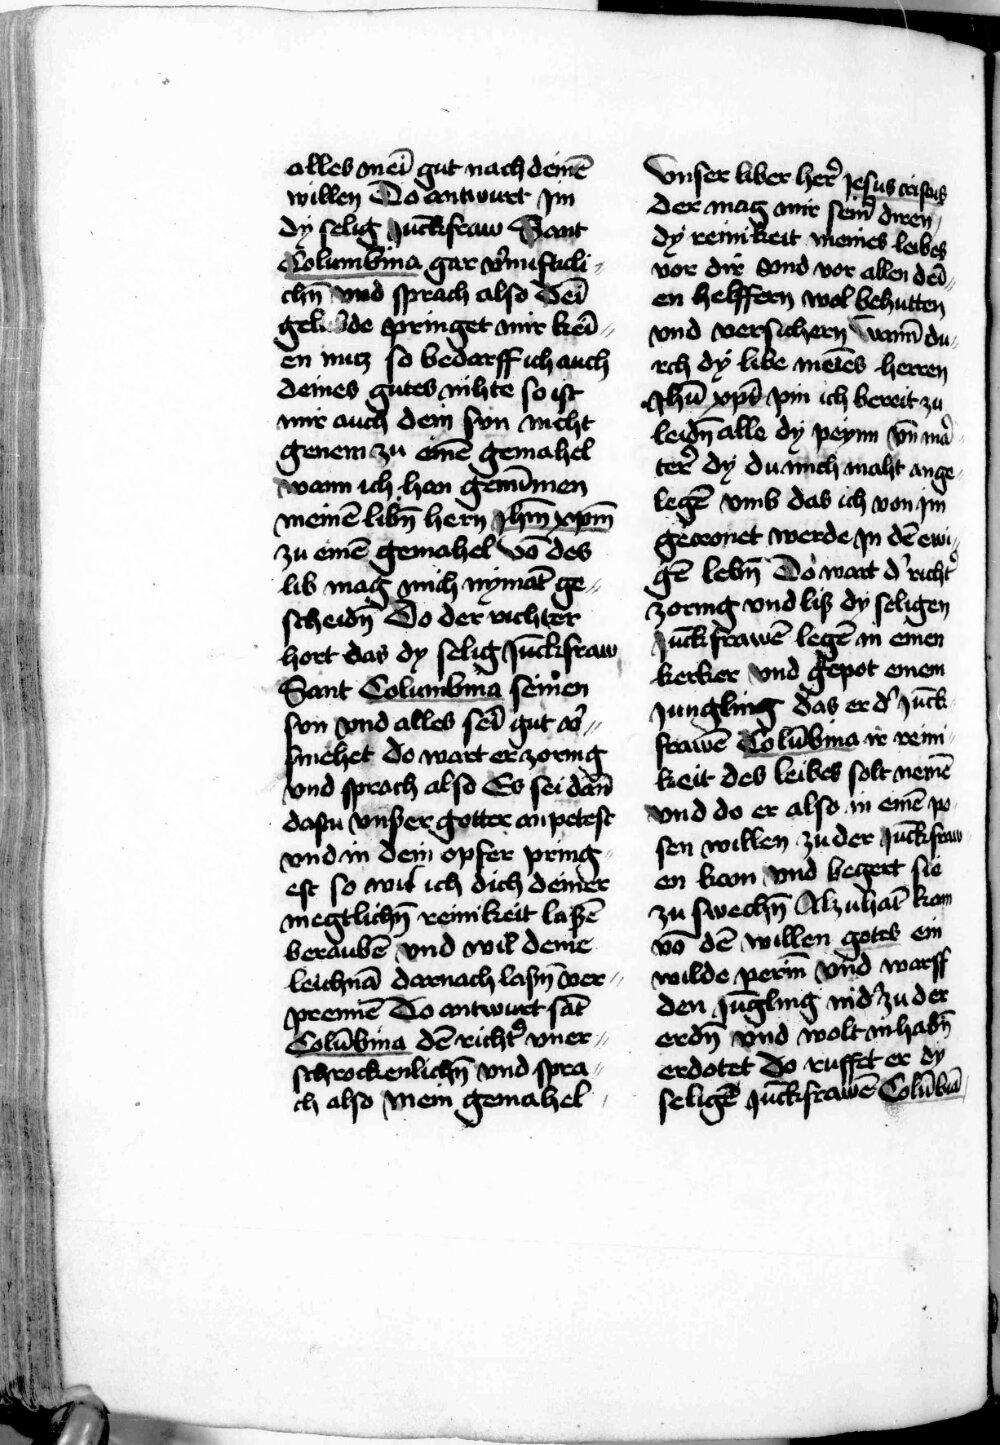 alles mei̅ gut nach deine̅
willen Do antwurt Im
dy selig Ju̅ckfraw Sant
Columbina gar v'nufticli-
chn̅ vnd sprach also Dei̅
gelubde springet mir kei̅-
en nutz so bedarff ich auch
deines gutes nihte so ist
mir auch dein sun nicht
genem zu eine̅ gemahel
wann ich han genu̅men
meine̅ libn̅ hern Jhm̅ xpm̅
zu eine̅ gemahel vo̅ des
lib mag mich nymat̅ ge-
scheidn̅ Do der richter
hort das dy selig Ju̅ckfraw
Sant Columbina seinen
sun vnd alles sei̅ gut v'-
smehet do wart er zornig
vnd sprach also Es sei dan̅
dastu vnser gotter anpetest
vnd in dein opfer pring-
est so wil ich dich deiner
megtlichn̅ reinikeit lasse̅
beraube̅ vnd wil deine
leichna̅ darnach lasn̅ ver-
prenne̅ Do antwurt sat̅
Colu̅bina de̅ richt' vner-
schrockenlichn̅ vnd spra-
ch also Mein gemahel
Vnser liber her' Jesus cristus
der mag mir sein' diren
dy reinikeit meines leibes
vor dir vnd vor allen dei̅-
en helffern wol behutten
vnd versichern Wann du-
rch dy libe meie̅s herren
Jhu̅ xpi̅ pin ich bereit zu
leidn̅ alle dy peynn vn̅ ma'-
ter' dy du mich maht ange-
lege̅ vmb das ich von Im
gecronet werde In de̅ ewi-
ge̅ lebn̅ Do wart d' richt'
zornig vnd liss dy seligen
Ju̅ckfrawe̅ lege̅ in einen
kerker vnd gepot einem
Jungling das er d' Ju̅ck-
frawe̅ Colu̅bina ir reini-
keit des leibes solt neme̅
vnd do er also in eine̅ po-
sen willen zu der Ju̅ckfraw-
en kam vnd begert sie
zu swechn̅ Alzuhat̅ kam
vo̅ de̅ willen gotes ein
wilde perin̅ vnd warff
den Ju̅gling nid' zu der
erdn̅ vnd wolt in habn̅
erdotet Do ruffet er dy
selige̅ Ju̅ckfrawe̅ Colu̅bia̅